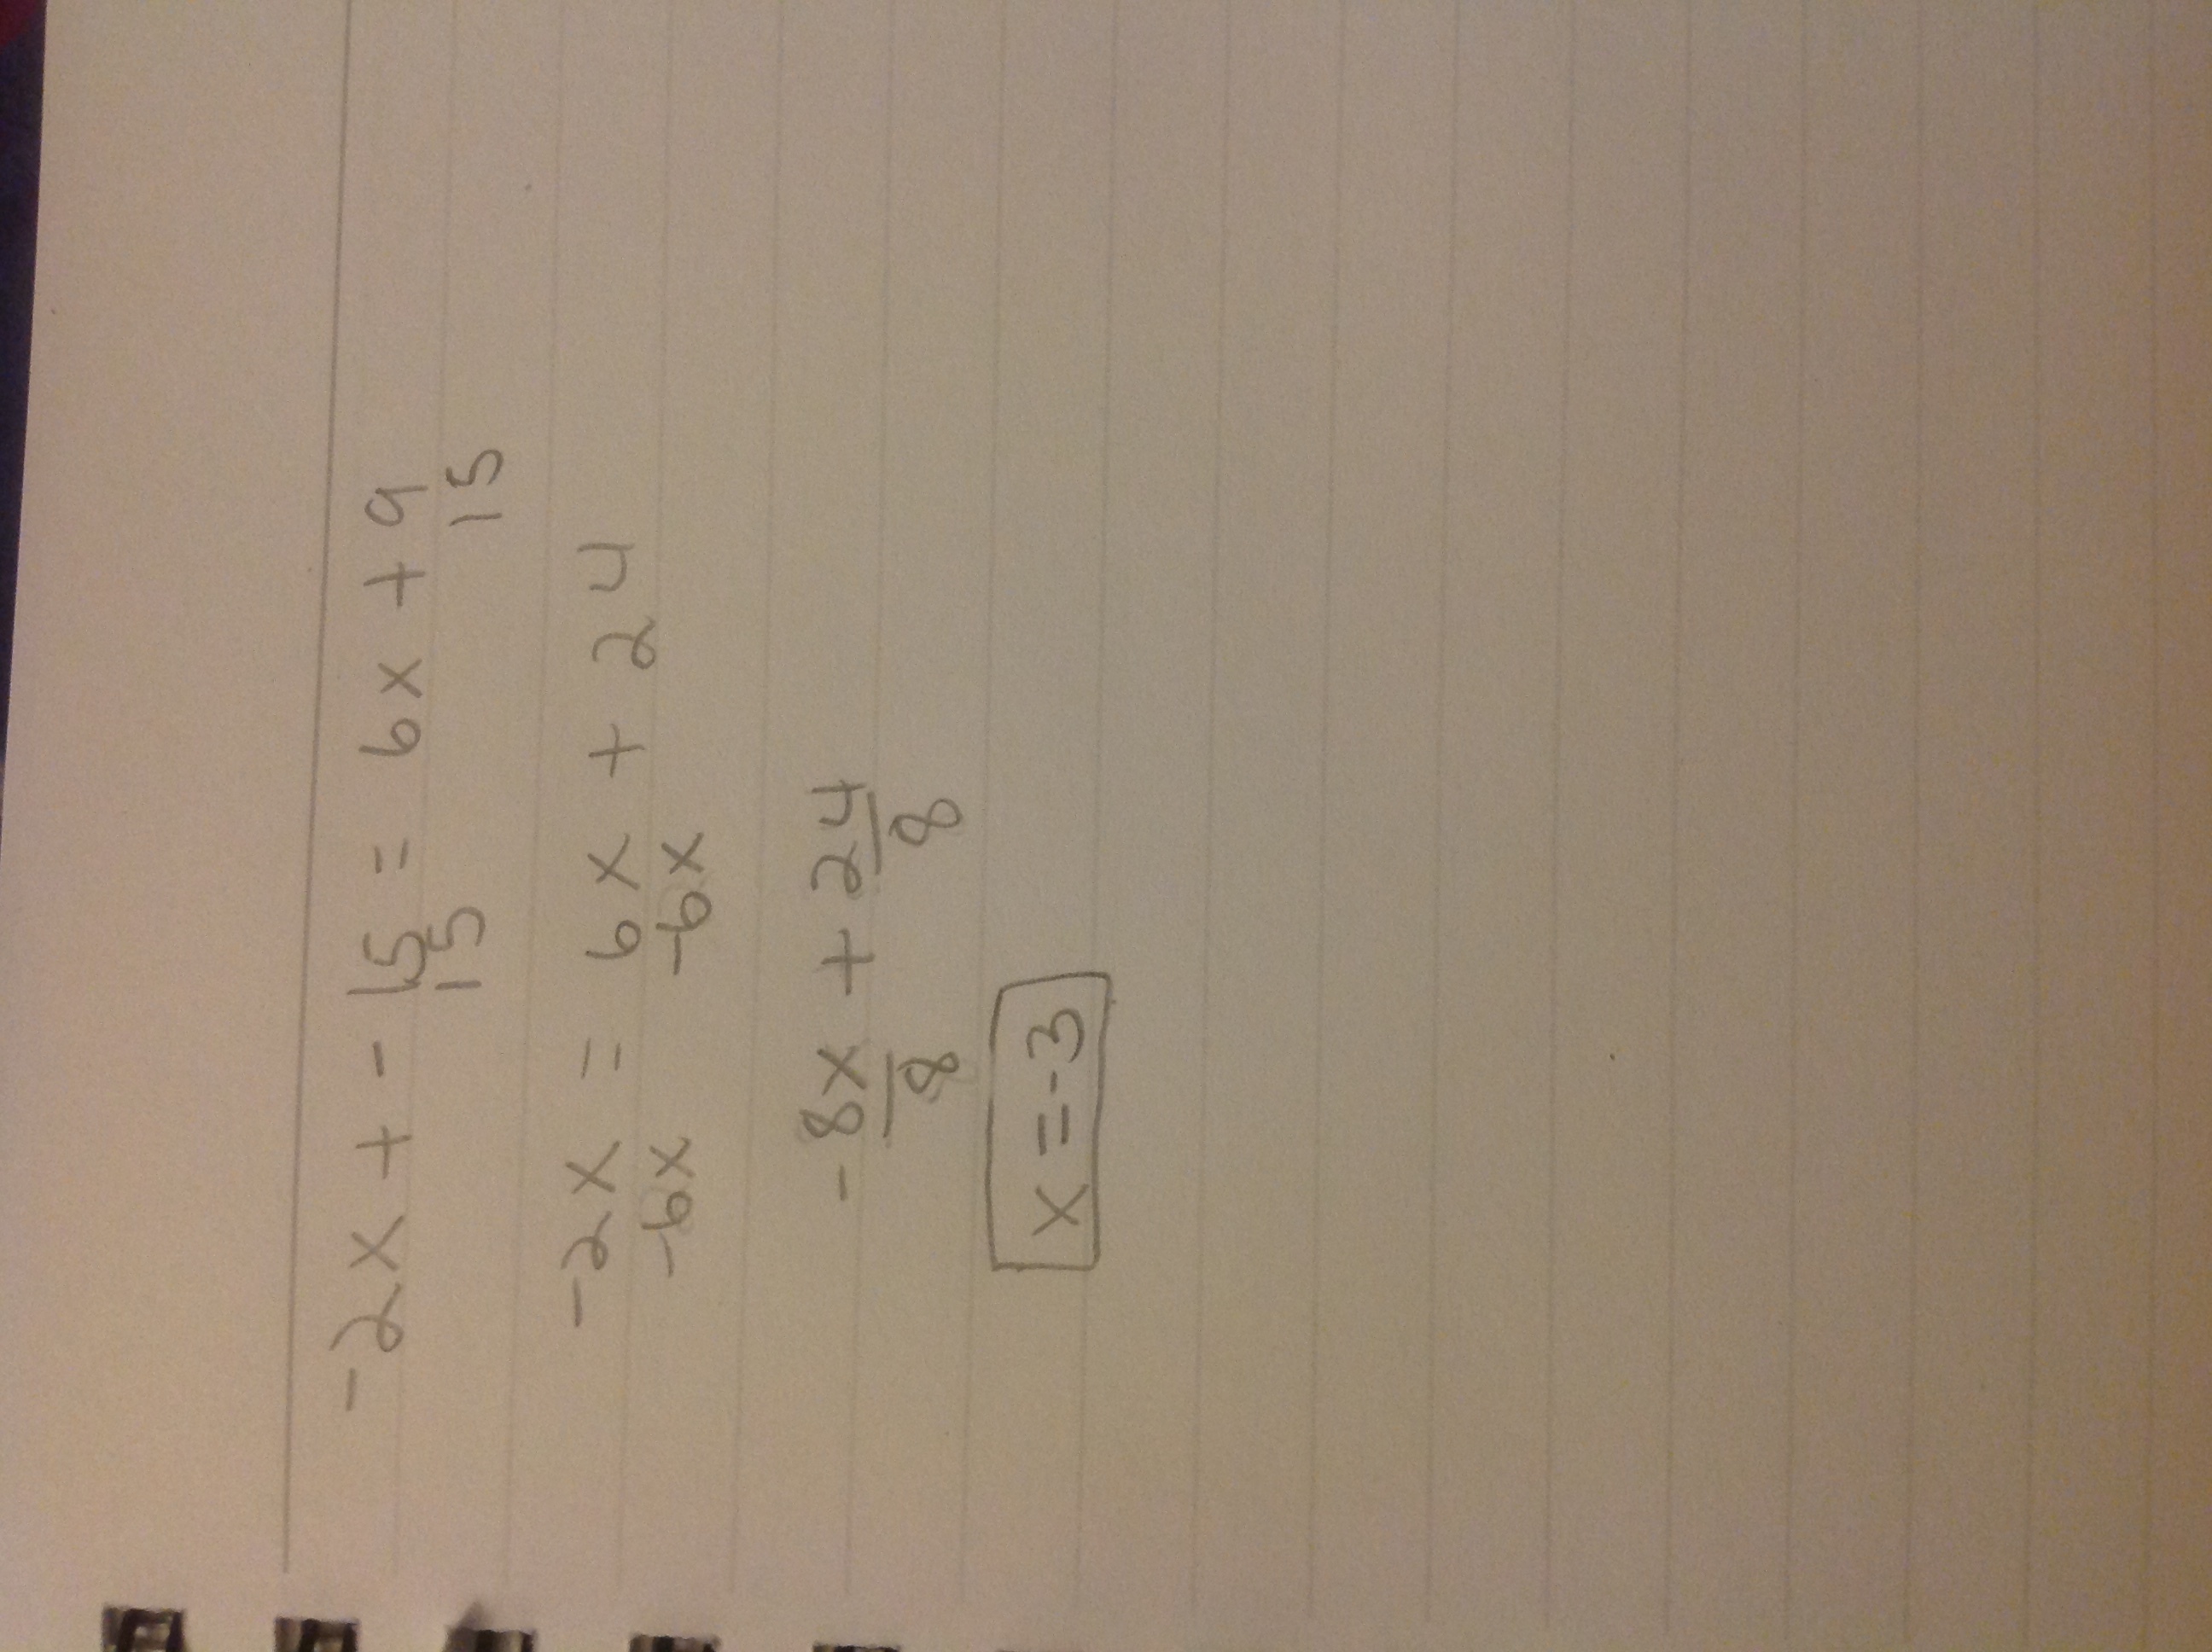 -2x + -15 = 6x + 9
15 15
-2x = 6x + 24
-6x -6x
-8x + 24
8 8
x = -3